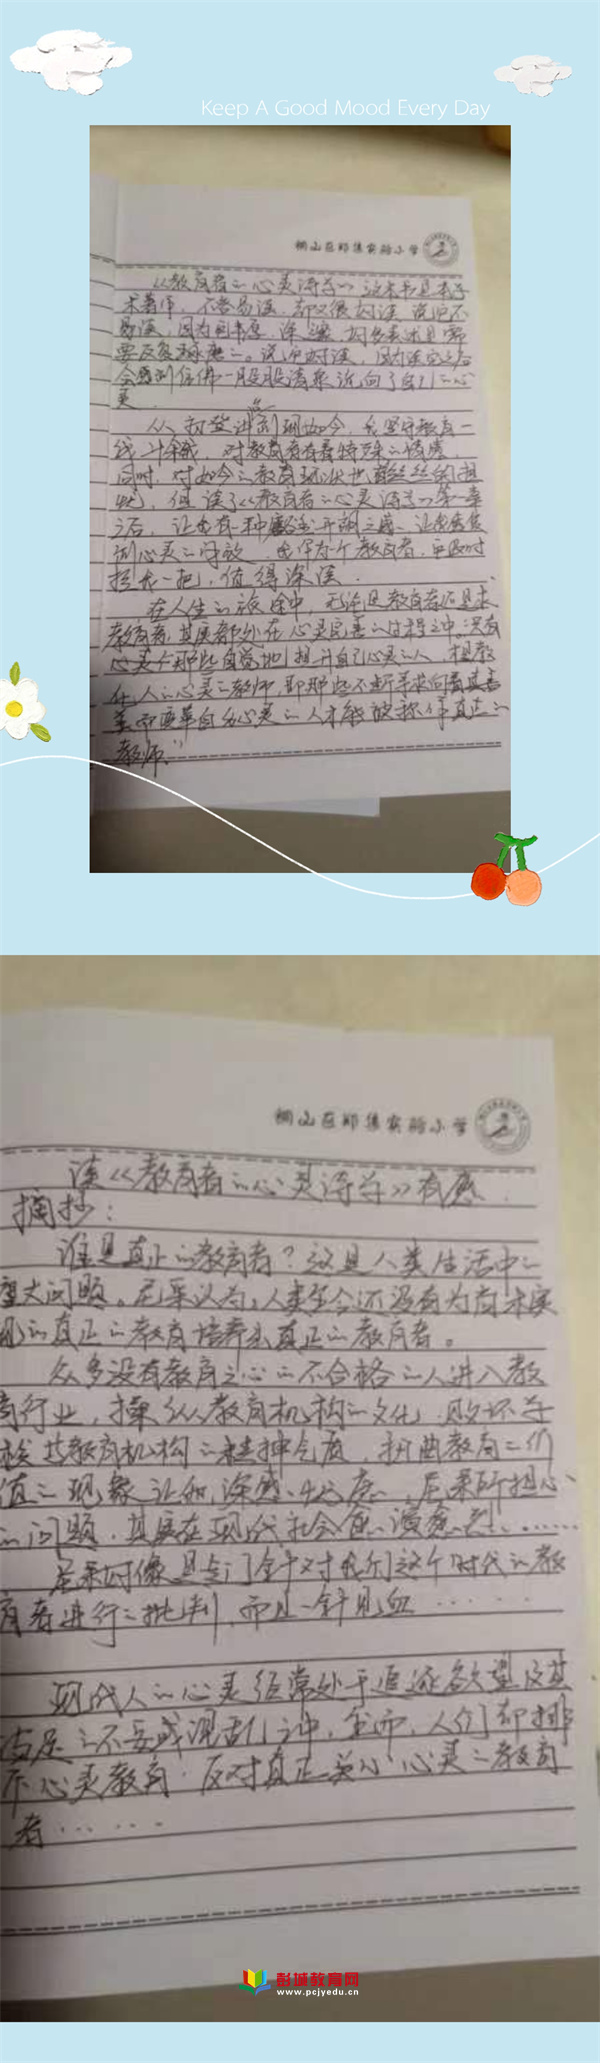 Keep A Good Mood Every Day
铜山区郑集实验小学
《教育者的心灵得芳》这本书是本学
术著作，不容易读，却又很好读，说它不
易读，因为因书厚，深邃，好多表述且需
要反复琢磨的。说它好读，因为读完之后
会感到仿佛一股股清泉流向了自己的心
灵。
从初登讲台到现如今，我坚守教育一
线
对教育有着特殊的情怀
同时，对如今的教育现状也有丝丝的担
忧，但读了《教育者的心灵得芳》第一章
之后，让我有一种豁然开朗之感
心灵的
教育者，
拉我一把，值得深读。
在人生的旅途中，无论是教育者还是求
教育者，其实都处在心灵完善的过程之中。只有
心灵
那些自觉地提升自己心灵的人，
人的心灵的教师，即那些不断寻求向着真善
美而
自我心灵的人才能被称作真正的
教师。”
铜山区郑集实验小学
读《教育者的心灵得芳》有感
摘抄：
谁是真正的教育者？这是人类生活中的
重大问题。尼采认为，人类至今还没有为尚未实
现的真正的教育培养出真正的教育者。
众多没有教育之心的不合格的人进入教
育行业，操纵教育机构的文化，败坏学
校 教育机构的精神气质，扭曲教育的价
值的现象让
深感
，尼采所担心
的问题，其实在现代社会
演愈烈……
尼采好像是专门针对我们这个时代的教
育者进行的批判，而且一针见血……
现代人的心灵经常处于追逐欲望及其
满足的不安或混乱之中，然而，人们却排
斥心灵教育，反对真正关心心灵的教育
者……
彭城教育网
www.pcjyedu.cn